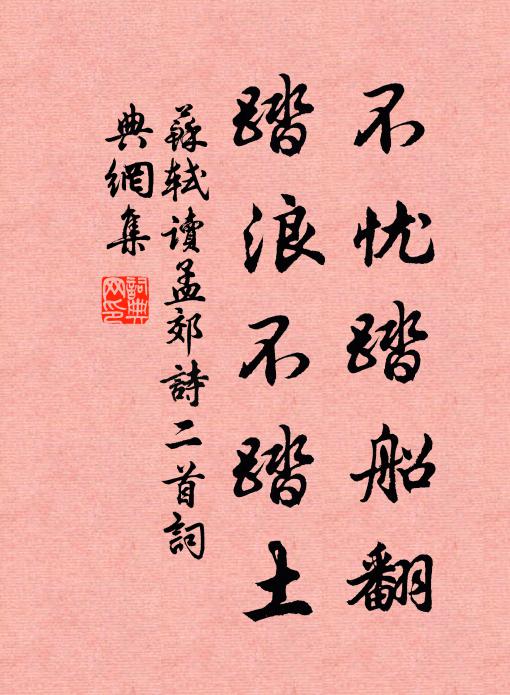 不忧踏船翻
踏浪不踏土
蘇轼读孟郊詩二首詞
典網集
詞典
网印